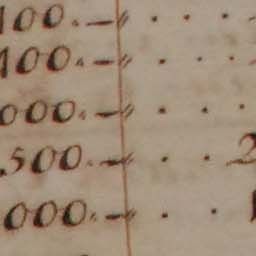 100. — " . . .
100. — " . . .
000. — " . . .
.500. — " . . 2
000. — " . .